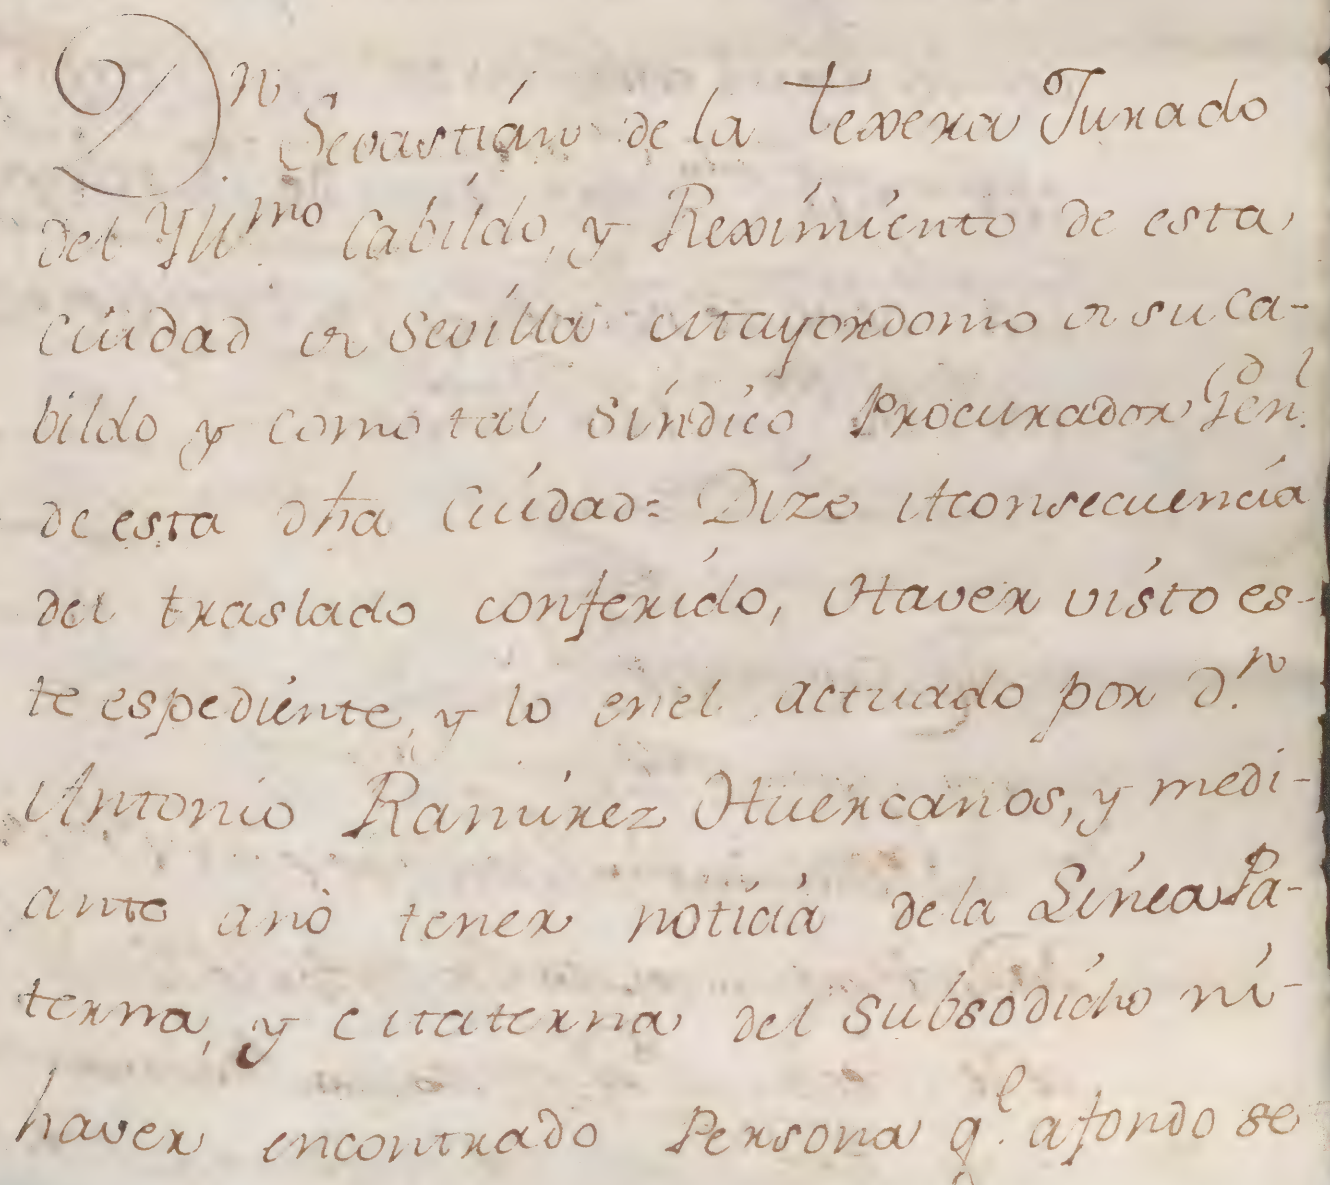 Dn Sevastián de la texera Jurado
del Yllmo Cabildo, y Reximiento de esta
Ciudad de Sevilla Mayordomo de su Ca-
bildo y como tal Síndico Procurador Genl.
de esta dha Ciudad= Dize Aconsecuencia
del traslado conferido, Haver visto es-
te espediente, y lo enel actuado por d.n
Antonio Ramírez Huercanos, y medi-
ante anò tener noticia dela Línea Pa-
terna, y Materna del Subsodicho ni
haver encontrado Persona q.e afondo se